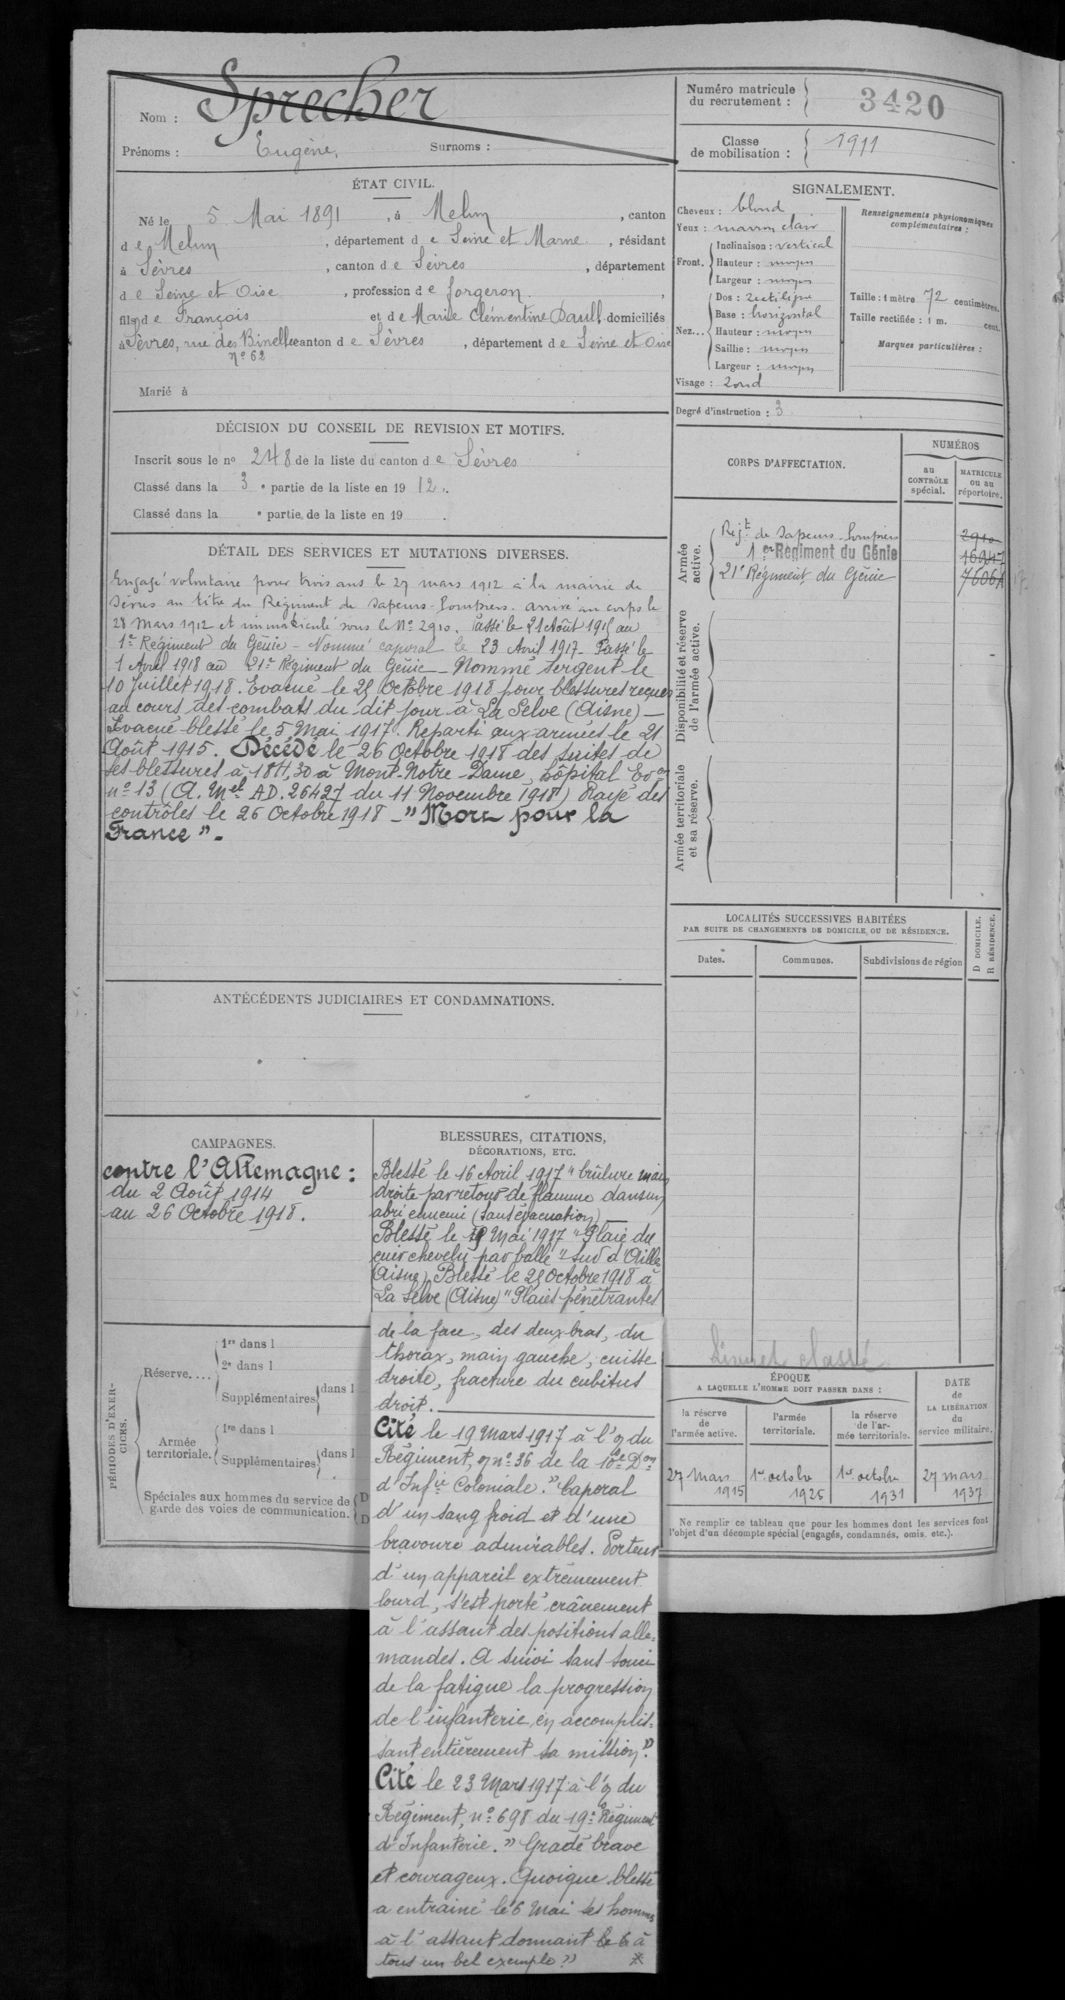 Nom : Sprecher
Prénoms : Eugène, Surnoms :
Numéro matricule du recrutement : 3420
Classe de mobilisation : 1911
ÉTAT CIVIL.
Né le 5 Mai 1891, à Melun, canton
de Melun, département de Seine et Marne, résidant
à Sèvres, canton de Sèvres, département
de Seine et Oise, profession de forgeron,
fils de François et de Marie Clémentine Daull, domiciliés
à Sèvres, rue des Binelles canton de Sèvres, département de Seine et Oise
nº 62
Marié à
SIGNALEMENT.
Cheveux : blond
Yeux : marron clair
Front. Inclinaison : vertical
Hauteur : moyen
Largeur : moyen
Nez... Dos : rectiligne
Base : horizontal
Hauteur : moyen
Saillie : moyen
Largeur : moyen
Visage : rond
Renseignements physionomiques
complémentaires :
Taille : 1 mètre 72 centimètres.
Taille rectifiée : 1 m. cent.
Marques particulières :
Degré d'instruction : 3
DÉCISION DU CONSEIL DE REVISION ET MOTIFS.
Inscrit sous le nº 248 de la liste du canton de Sèvres
Classé dans la 3 e partie de la liste en 1912.
Classé dans la e partie de la liste en 19
DÉTAIL DES SERVICES ET MUTATIONS DIVERSES.
Engagé volontaire pour trois ans le 27 mars 1912 à la mairie de
Sèvres au titre du Régiment de Sapeurs-Pompiers. arrivé au corps le
28 mars 1912 et immatriculé sous le Nº 2910. Passé le 21 Août 1915 au
1er Régiment du Génie - Nommé caporal le 23 Avril 1917 - Passé le
1 Avril 1918 au 21e Régiment du Génie - Nommé Sergent le
10 Juillet 1918. Evacué le 25 Octobre 1918 pour blessures reçues
au cours des combats du dit jour à La Selve (Aisne) -
Evacué blessé le 5 Mai 1917. Reparti aux armées le 21
Août 1915. Décédé le 26 Octobre 1918 des suites de
ses blessures à 18H,30 à Mont-Notre-Dame, hôpital Evon
nº 13 (A. Mel AD. 26427 du 11 Novembre 1918) Rayé des
contrôles le 26 Octobre 1918 - "Mort pour la
France" -
CORPS D'AFFECTATION.
NUMÉROS
au CONTRÔLE spécial.
MATRICULE ou au répertoire.
Armée active.
Regt de Sapeurs-Pompiers 2910
1er Regiment du Génie
21e Régiment du Génie
Disponibilité et réserve de l'armée active.
Armée territoriale et sa réserve.
LOCALITÉS SUCCESSIVES HABITÉES
PAR SUITE DE CHANGEMENTS DE DOMICILE OU DE RÉSIDENCE.
Dates. Communes. Subdivisions de région
D DOMICILE.
R RÉSIDENCE.
ANTÉCÉDENTS JUDICIAIRES ET CONDAMNATIONS.
CAMPAGNES.
contre l'Allemagne :
du 2 Août 1914
au 26 Octobre 1918.
BLESSURES, CITATIONS,
DÉCORATIONS, ETC.
Blessé le 16 Avril 1917 "brûlure main
droite par retour de flamme dans un
abri ennemi (sans évacuation) -
Blessé le Mai 1917 "Plaie du
cuir chevelu par balle" Sud d'Ailles
(Aisne) Blessé le 25 Octobre 1918 à
La Selve (Aisne) "Plaies pénétrantes
de la face, des deux bras, du
thorax, main gauche, cuisse
droite, fracture du cubitus
droit.
Cité le 19 Mars 1917 à l'o/ du
Régiment, o/ nº 36 de la 10e Don
d'Infie Coloniale. "Caporal
d'un sang froid et d'une
bravoure admirables. Porteur
d'un appareil extrêmement
lourd, s'est porté crânement
à l'assaut des positions alle-
mandes. A suivi sans souci
de la fatigue la progression
de l'infanterie, en accomplis-
sant entièrement sa mission."
Cité le 23 Mars 1917 à l'o/ du
Régiment, nº 698 du 19e Régiment
d'Infanterie. "Gradé brave
et courageux. Quoique blessé
a entrainé le 6 Mai ses hommes
à l'assaut donnant le 6 à
tous un bel exemple" *
PÉRIODES D'EXERCICES.
Réserve....
1re dans l
2e dans l
Supplémentaires dans l
Armée territoriale.
1re dans l
Supplémentaires dans l
Spéciales aux hommes du service de
garde des voies de communication.
D
D
classé
ÉPOQUE
A LAQUELLE L'HOMME DOIT PASSER DANS :
la réserve de l'armée active.
l'armée territoriale.
la réserve de l'armée territoriale.
DATE de LA LIBÉRATION du service militaire.
27 mars 1915
1er octobre 1925
1er octobre 1931
27 mars 1937
Ne remplir ce tableau que pour les hommes dont les services font
l'objet d'un décompte spécial (engagés, condamnés, omis, etc.).